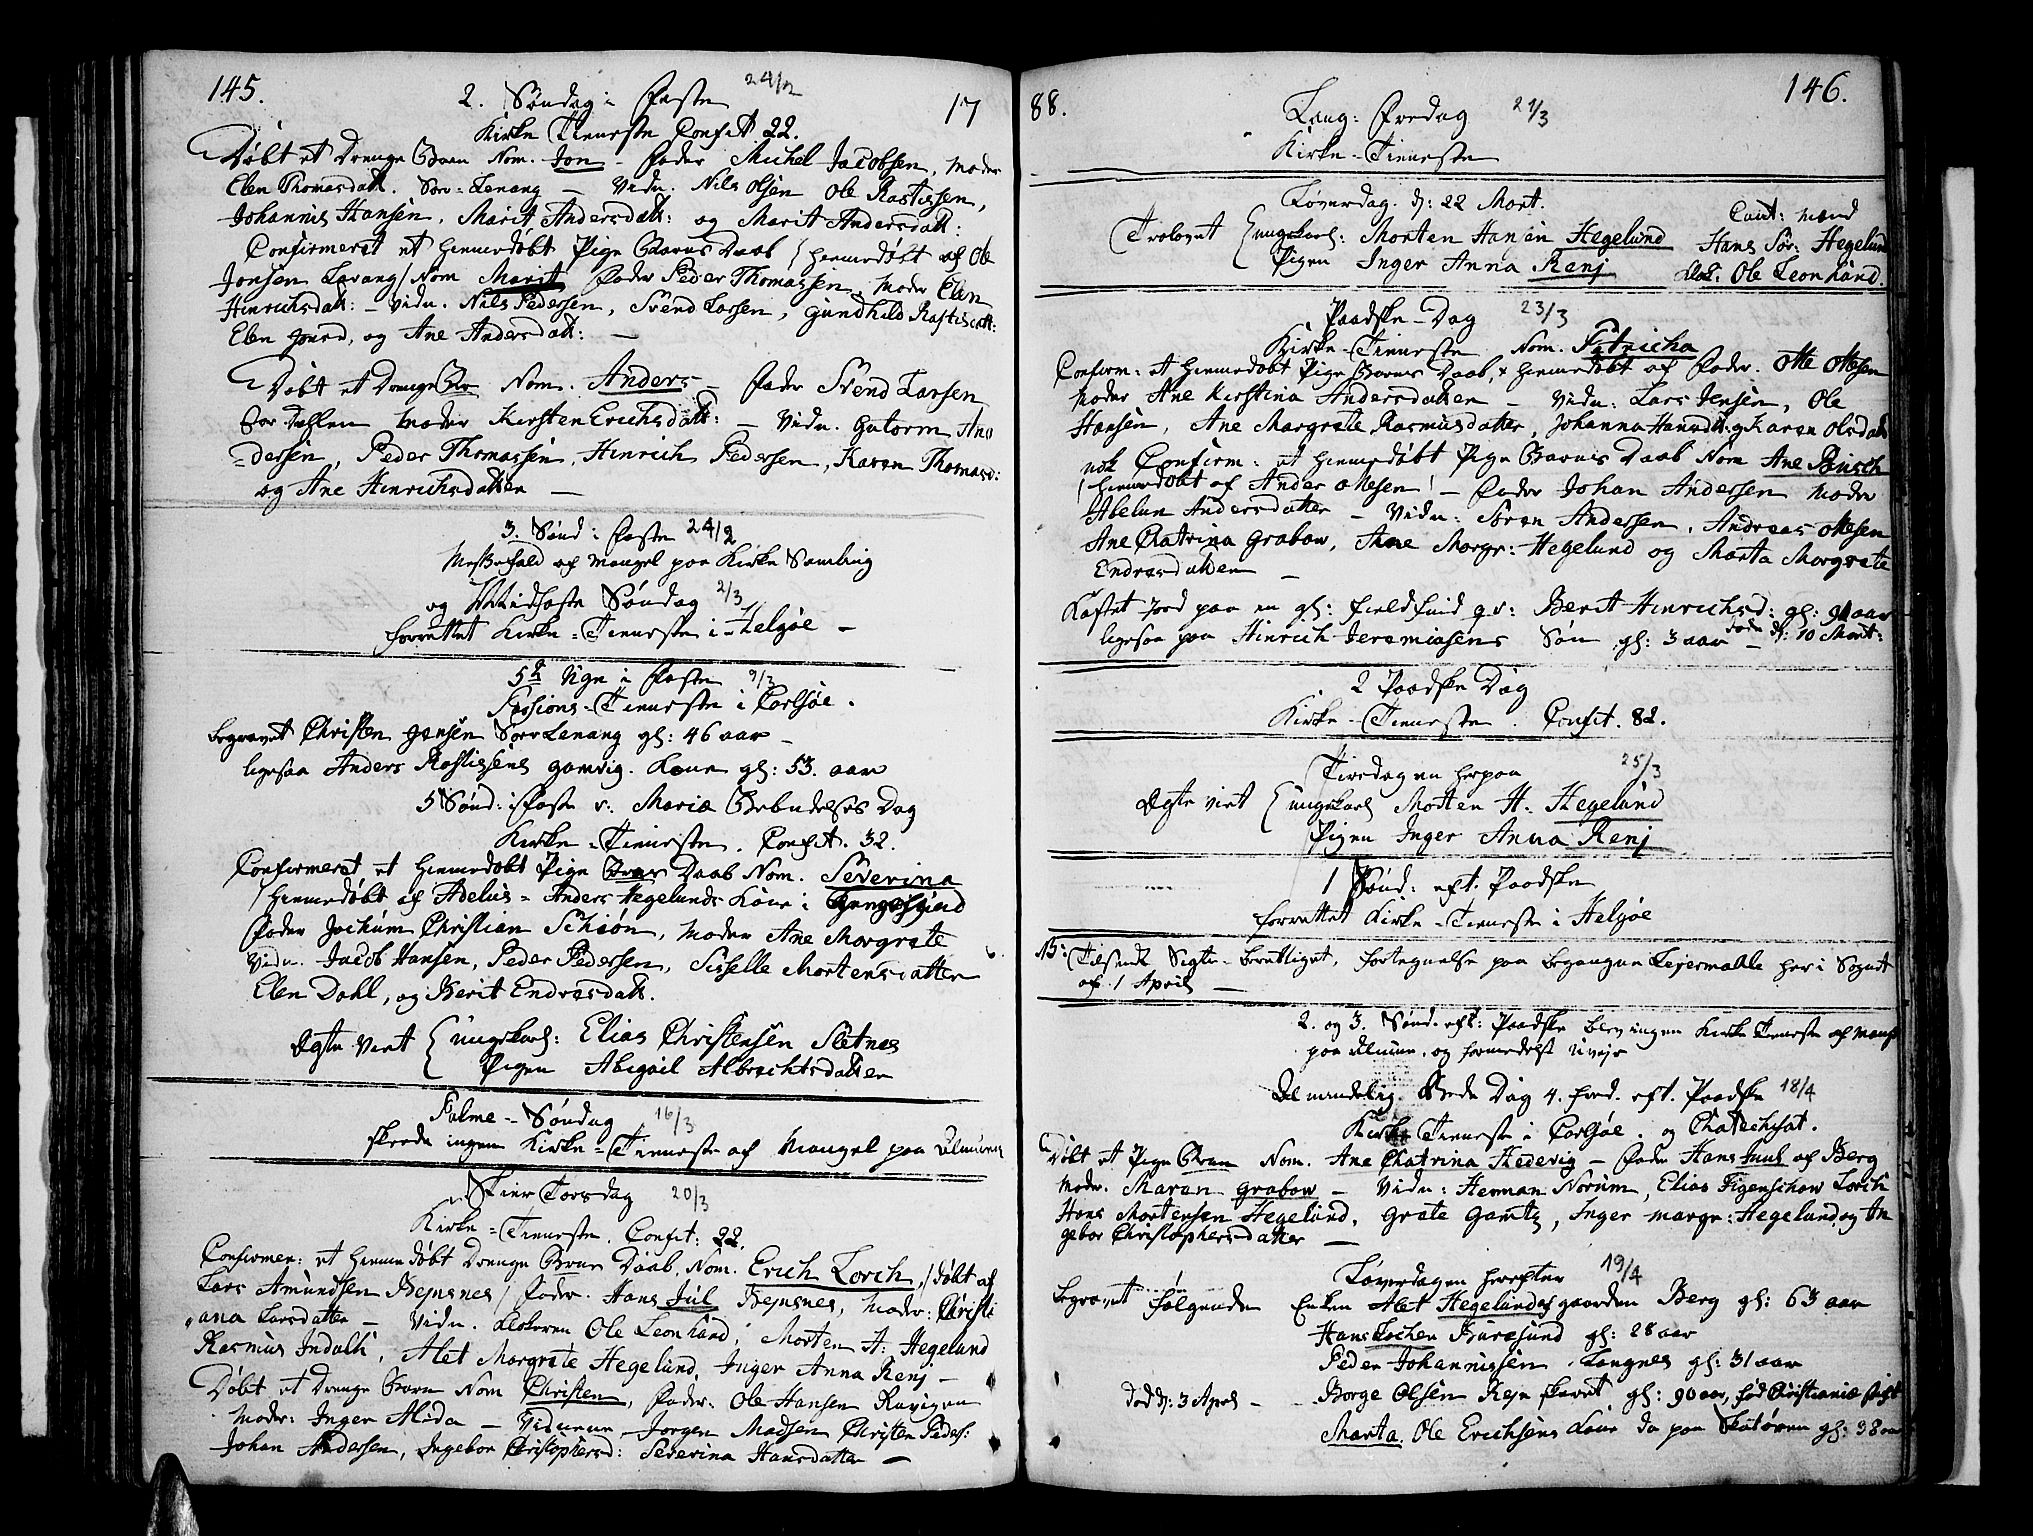 145.
2. Søndag i Faste 24/2 17
Kirke Tieneste Confit. 22.
Døbt et Drenge Barn Nom. Jon - Fader Michel Jacobsen, Moder
Elen Thomasdatt. Sørv-Lenang - Vidn. Nils Olsen Ole Rastissen,
Johannis Hansen, Marit Andersdatt: og Marit Andersdatt:
Confirmeret et hiemmedøbt Pige Barns Daab / hiemmedøbt af Ole
Jonsen Lavang / Nom Marit Fader Peder Thomassen, Moder Elen
Hinrichsdatt: - Vidn. Nils Pedersen, Svend Larsen, Gundhild Rastisdatt:
Elen og Ane Andersdatt: -
Døbt et Drenge Bar Nom. Anders - Fader Svend Larsen
Moder Kirsten Erichsdatt: - Vidn. Gutorm An
=dersen, Peder Thomassen, Hinrich Pedersen, Karen Thomasd:
og Ane Hinrichsdatter -
3. Sønd: i Faste 24/2
Messefald af Mangel paa Kirke Samling
og Midfaste Søndag 2/3
forrettet Kirke=Tieneste i Helgøe -
5te Uge i Faste 9/3
Passions-Tieneste i Carlsøe.
begravet Christen Jensen Sørv Lenang gl: 46 aar -
ligesaa Anders Rastissens Gamvig. Kone gl: 53. aar
5 Sønd: i Faste v. Mariæ Bebudelses Dag
Kirke-Tieneste. Confit. 32.
Confirmeret et hiemmedøbt Pige Barns Daab Nom. Severina
/ hiemmedøbt af Adelus - Anders Hegelunds Kone i
Fader Jochum Christian Schiøn, Moder Ane Margrete
Vidn. Jacob Hansen, Peder Pedersen, Sisselle Mortensdatter
Elen Dahl, og Berit Endresdatt.
Ægte viet { ungekarl: Elias Christensen Sletnes
Pigen Abigail Albrechtsdatter
Palme-Søndag 16/3
skeede ingen Kirke=Tieneste af Mangel paa Almuen
Skier Torsdag 20/3
Kirke=Tieneste. Confit: 22.
Confirmer: et hiemmedøbt Drenge Barns Daab, Nom. Erich Lorch, / døbt af
Lars Amundsen Bensnes / Fader. Hans Jul Bensnes, Moder: Christi
ana Larsdatter - Vidn. Klokeren Ole Leonhard, Morten H: Hegelund
Rasmus Indahl, Alet Margrete Hegelund, Inger Anna Renj -
Døbt et Drenge Barn Nom Christen, Fader. Ole Hansen Ravigen
Moder: Inger Alida - Vidnerne Jørgen Madsen Christen Peders:
Johan Andersen, Ingebor Christophersd: Severina Hansdatter -
88. 146.
Lang: Fredag 21/3
Kirke-Tieneste
Løverdag. d: 22 Mart.
Trolovet { ungekarl: Morten Hansen Hegelund
Pigen Inger Anna Renj
Caut: Mænd
Hans Sør: Hegelund
Klok: Ole Leonhard.
Paadske-Dag 23/3
Kirke-Tieneste Nom. Petricha
Confirm: et hiemmedøbt Pige Barns Daab, + hiemmedøbt af Fader. Otte Ottesen
Moder Ane Kirstina Andersdatter - Vidn: Lars Jensen, Ole
Hansen, Ane Margrete Rasmusdatter, Johanna Hansdt: og Karen Olsdatt
nok Confirm: et hiemmedøbt Pige Barns Daab Nom Ane Binsch
/ hiemmedøbt af Ander Olsen / - Fader Johan Andersen Moder
Abelun Andersdatter - Vidn: Søren Andersen, Andreas Olsen
Ane Chatrina Grabow, Ane Margr: Hegelund og Marta Margrete
Endresdatter -
Kastet Jord paa en gl: Fieldfind qv: Berit Hinrichsd: gl: 91 aar
ligesaa paa Hinrich Jeremiasens Søn gl: 3 aar - døde d: 10 Mart:
2 Paadske Dag
Kirke-Tieneste. Confit. 82.
Tirsdagen herpaa 25/3
Ægte viet { ungekarl Morten H. Hegelund
Pigen Inger Anna Renj
1 Sønd: eft. Paadske
forrettet Kirke-Tieneste i Helgøe
NB: Tilsendt Fortegnelse paa begangne Leiermaale her i Sognet
af 1 April -
2. og 3. Sønd. eft: Paadske blev ingen Kirke Tieneste af Mangl
paa Almue, og formedelst Uvejr
Almindelig Bede Dag 4. Fred. eft. Paadske 18/4
Kirke-Tieneste i Carlsøe. og Chatechisat.
Døbt et Pige Barn Nom. Ane Chatrina Hedevig - Fader Hans Juul af Berg
Moder. Maren Grabow - Vidn: Herman Norum, Elias Figenschow Lorch
Hans Mortensen Hegelund, Grete Gamtz, Inger Margr: Hegelund og In
gebor Christophersdatter -
Løverdagen herefter 19/4
Begravet følgende Enken Alet Hegelund af gaarden Berg gl: 63 aar
Hans Lochen Buresund gl: 28 aar
Peder Johannissen Langnes gl: 31 aar
død d: 3 April - Børge Olsen gl: 90 aar, fød Christianiæ Stift
Marta Ole Erichsens Kone da paa Skatøren gl: 38 aar